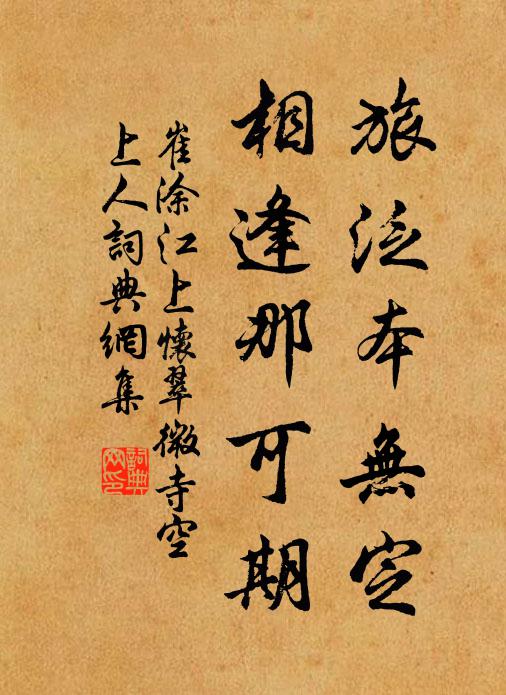 旅泛本無定
相逢那可期
崔涂江上懷翠微寺空
上人詞典網集
詞典網印